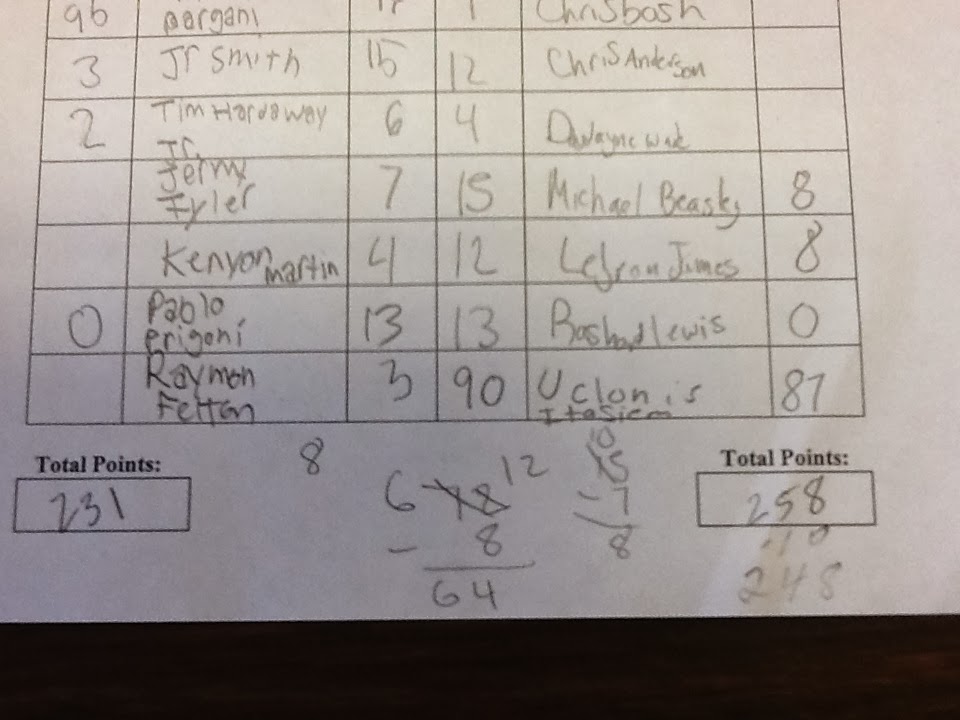 96 pargani 1 Chris bosh
3 Jr Smith 15 12 Chris Anderson
2 Tim Hardaway Jr. 6 4 Dwayne wade
Tyler 7 15 Michael Beasly 8
Kenyon martin 4 12 Lebron James 8
0 Pablo prigoni 13 13 Rashard lewis 0
Raymon Felton 3 90 87
Total Points:
231
8
6 78 12
- 8
64
10
15
- 7
8
Total Points:
258
- 10
248